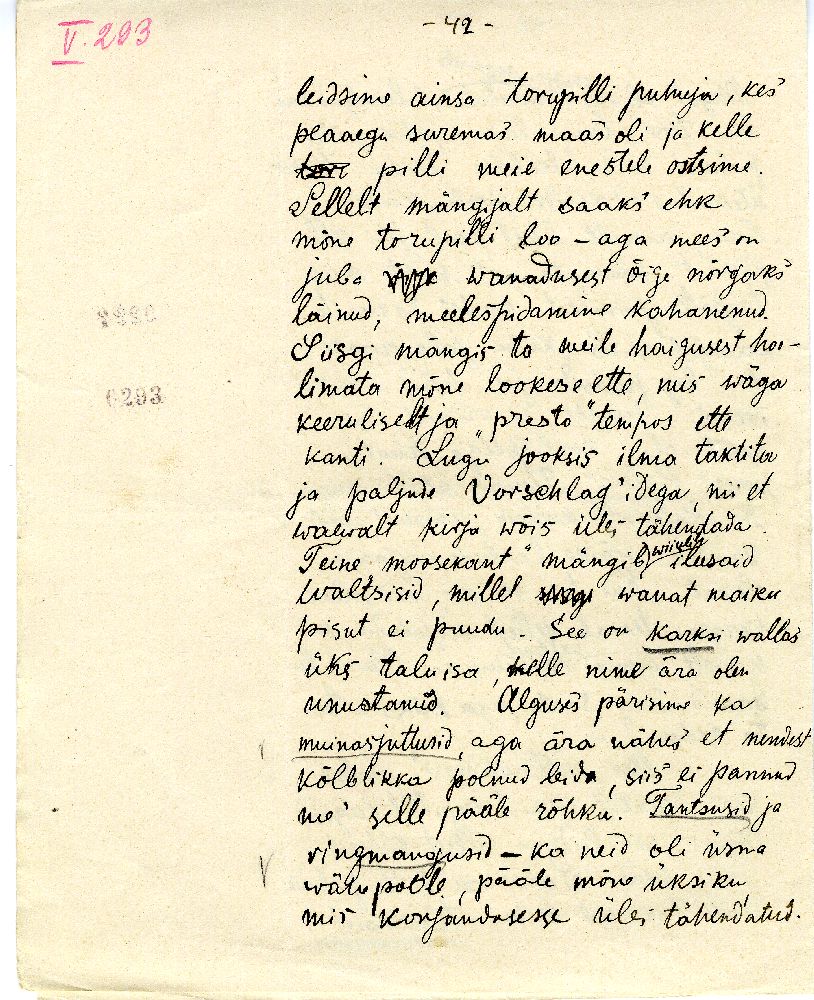 V. 293
- 42 -
leidsime ainsa torupilli puhuja, kes
peaaegu suremas maas oli ja kelle
pilli meie enestele ostsime.
Sellelt mängijalt saaks ehk
mõne torupilli loo – aga mees on
juba wanadusest õige nõrgaks
läinud, meelespidamine kahanenud.
Siisgi mängis ta meile haigusest hoo-
limata mõne lookese ette, mis wäga
keeruliselt ja „presto" tempos ette
kanti. Lugu jooksis ilma taktita
ja paljude Vorschlag'idega, nii et
waewalt kirja wõis üles tähendada.
Teine moosekant mängib wiiulil ilusaid
waltsisid, millel wanat maiku
pisut ei puudu. See on Karksi wallas
üks taluisa, kelle nime ära olen
unustanud. Alguses pärisime ka
muinasjuttusid, aga ära nähes et nendest
kõlblikka polnud leida, siis ei pannud
me' selle pääle rõhku. Tantsusid ja
ringmängusid – ka neid oli üsna
wähe pääle mõne üksiku,
mis korjandusesse üles tähendatud.
6293